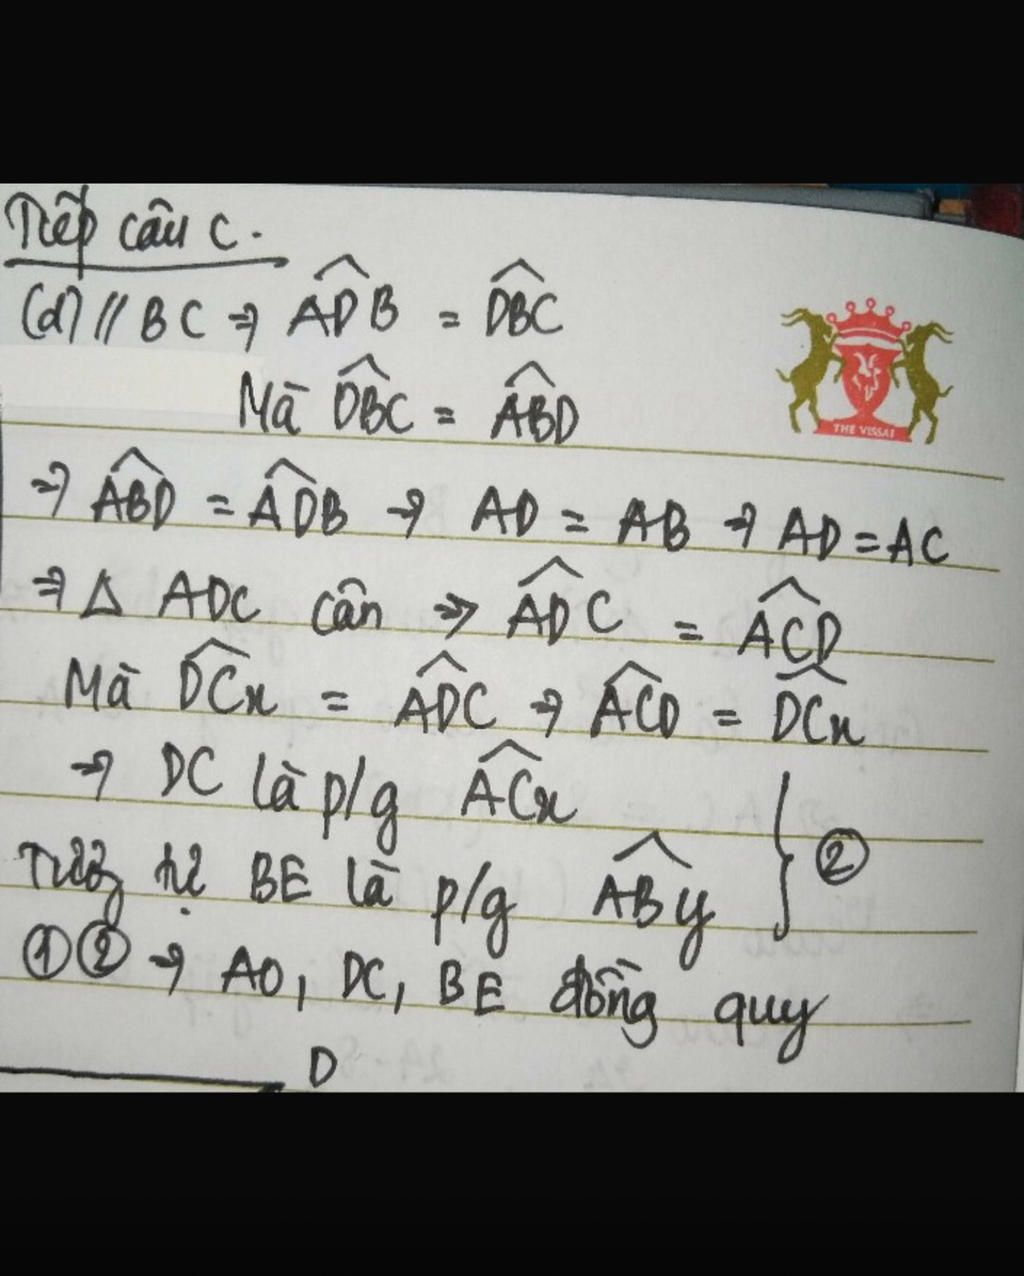 Tiếp câu c.
(d) // BC ⇒ \widehat{ADB} = \widehat{DBC}
Mà \widehat{DBC} = \widehat{ABD}
THE VISSAI
⇒ \widehat{ABD} = \widehat{ADB} ⇒ AD = AB ⇒ AD = AC
⇒ Δ ADC cân ⇒ \widehat{ADC} = \widehat{ACD}
Mà \widehat{DCx} = \widehat{ADC} ⇒ \widehat{ACD} = \widehat{DCx}
⇒ DC là p/g \widehat{ACx}
Tương tự BE là p/g \widehat{ABy} } ②
① ② ⇒ AO, DC, BE đồng quy
D